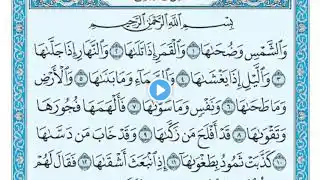 بِسْمِ اللَّهِ الرَّحْمَٰنِ الرَّحِيمِ
وَالشَّمْسِ وَضُحَاهَا ١ وَالْقَمَرِ إِذَا تَلَاهَا ٢ وَالنَّهَارِ إِذَا جَلَّاهَا
٣ وَاللَّيْلِ إِذَا يَغْشَاهَا ٤ وَالسَّمَاءِ وَمَا بَنَاهَا ٥ وَالْأَرْضِ
وَمَا طَحَاهَا ٦ وَنَفْسٍ وَمَا سَوَّاهَا ٧ فَأَلْهَمَهَا فُجُورَهَا
وَتَقْوَاهَا ٨ قَدْ أَفْلَحَ مَن زَكَّاهَا ٩ وَقَدْ خَابَ مَن دَسَّاهَا
١٠ كَذَّبَتْ ثَمُودُ بِطَغْوَاهَا ١١ إِذِ انبَعَثَ أَشْقَاهَا ١٢ فَقَالَ لَهُمْ